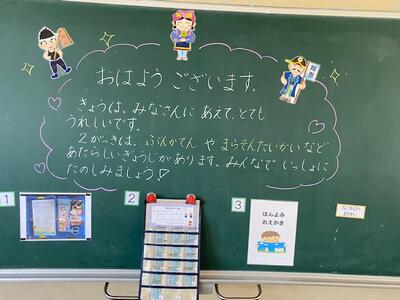 おはよう ございます。
きょうは、みなさんに あえて、とても
うれしいです。
2がっきは、ぶんかてん や まらそんたいかい など
あたらしい ぎょうじが あります。みんなで いっしょに
たのしみましょう♡
1
2
3
ほんよみ
おえかき